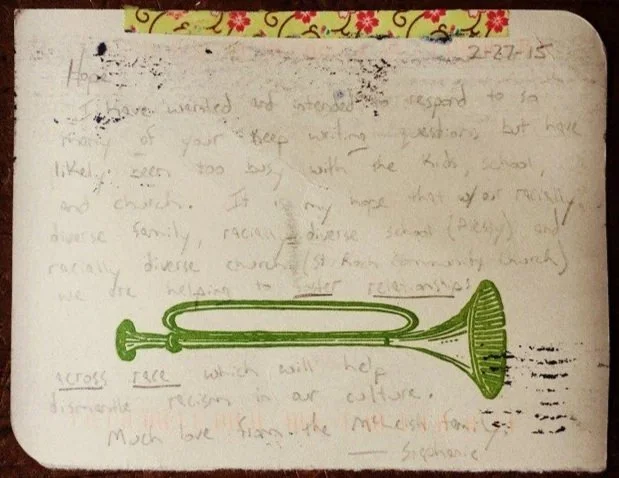 2-27-15
Hope
I have wanted and intended to respond to so
many of your keep writing questions but have
likely been too busy with the kids, school,
and church. It is my hope that w/our racially
diverse family, racially diverse school (Plessy) and
racially diverse church (St. Roch Community Church)
we are helping to foster relationships
across race which will help
dismantle racism in our culture.
Much love from the McLeish family.
— Stephanie